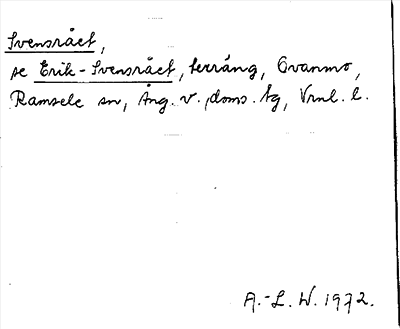 Svensråët,
se Erik-Svensråët, terräng, Ovanmo,
Ramsele sn, Ång. v. doms. tg, Vrnl. l.
A.-L. W. 1972.